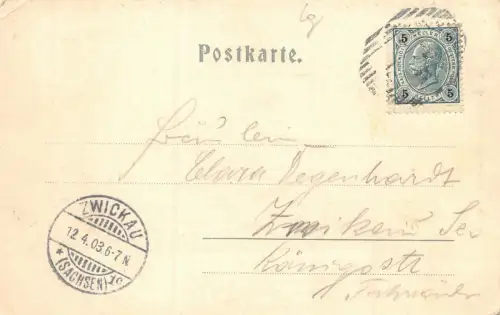 Postkarte.
5 5
5 5
Fräulein
Clara Degenhardt
Zwickau
Königsstr
ZWICKAU
12.4.03.6-7N
* (SACHSEN)